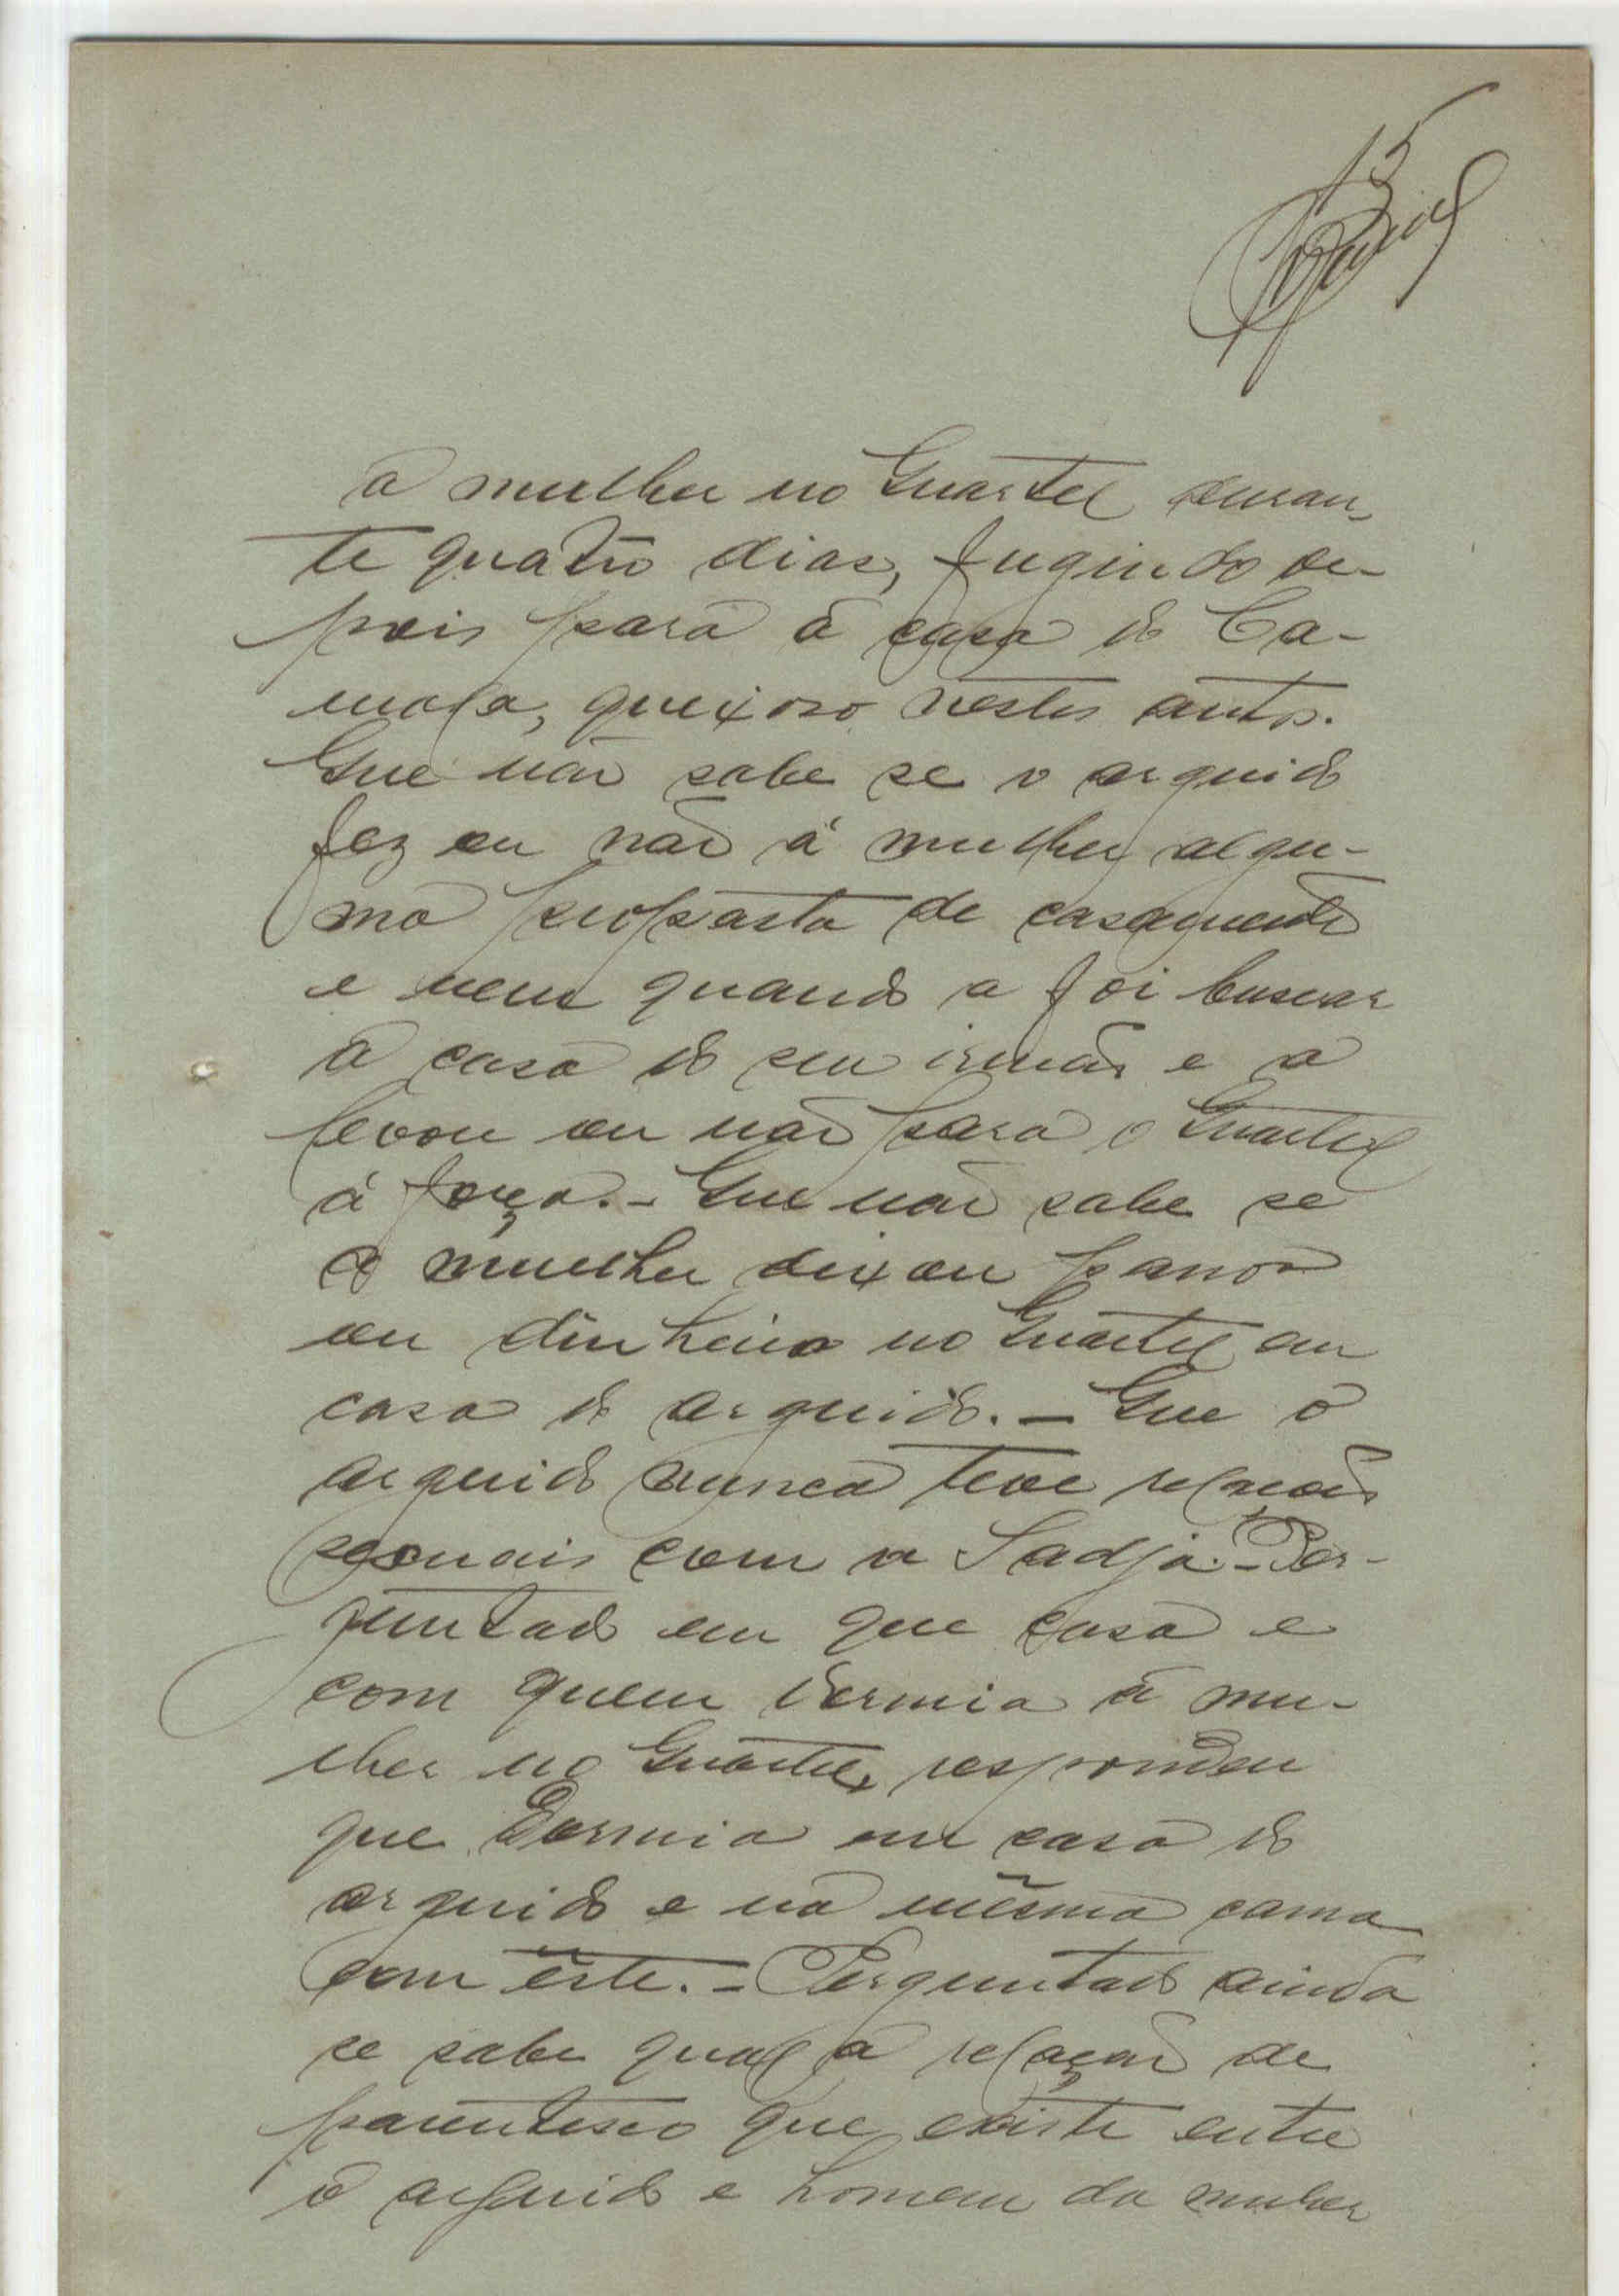 15
a mulher no Quartel duran-
te quatro dias, fugindo de-
pois para a casa do Ca-
mala, queixoso nestes autos.
Que não sabe se o arguido
fez ou não á mulher algu-
ma proposta de casamento
e nem quando a foi buscar
a casa do seu irmão e a
levou ou não para o Quartel
á força. - Que não sabe se
a mulher deixou panos
ou dinheiro no Quartel em
casa do arguido. - Que o
arguido nunca teve relações
sexuais com a Sadja. - Per-
guntado em que casa e
com quem dormia a mu-
lher no Quartel, respondeu
que dormia em casa do
arguido e na mesma cama
com êste. - Perguntado ainda
se sabe qual a relação de
parentesco que existe entre
o arguido e homem da mulher